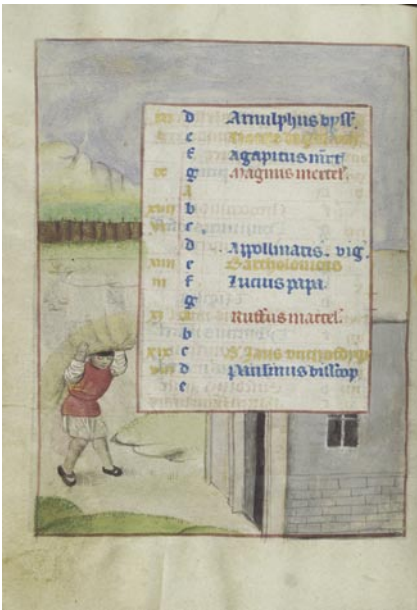 d Arnulphus byss.
e
f Agapitus mrt
g Magnus mertel.
A
xvii b
c
d Appollinaris. vig.
e Bartholomeus
iii f Lucius papa.
g
A Ruffus martel.
b
xix c S. Jans
d paulinus bisscop
e